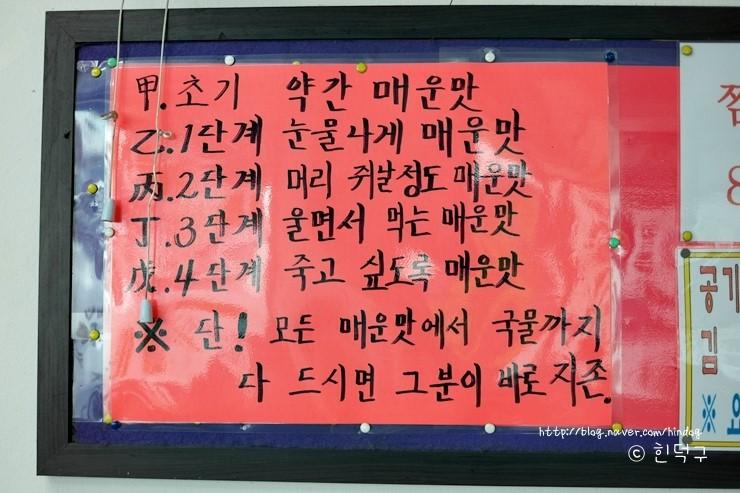 甲.초기 약간 매운맛
乙.1단계 눈물나게 매운맛
丙.2단계 머리 쥐날정도 매운맛
丁.3단계 울면서 먹는 매운맛
戊.4단계 죽고 싶도록 매운맛
※ 단! 모든 매운맛에서 국물까지
다 드시면 그분이 바로 지존.
공기
김
※ 요
http://blog.naver.com/hindog
© 힌덕구